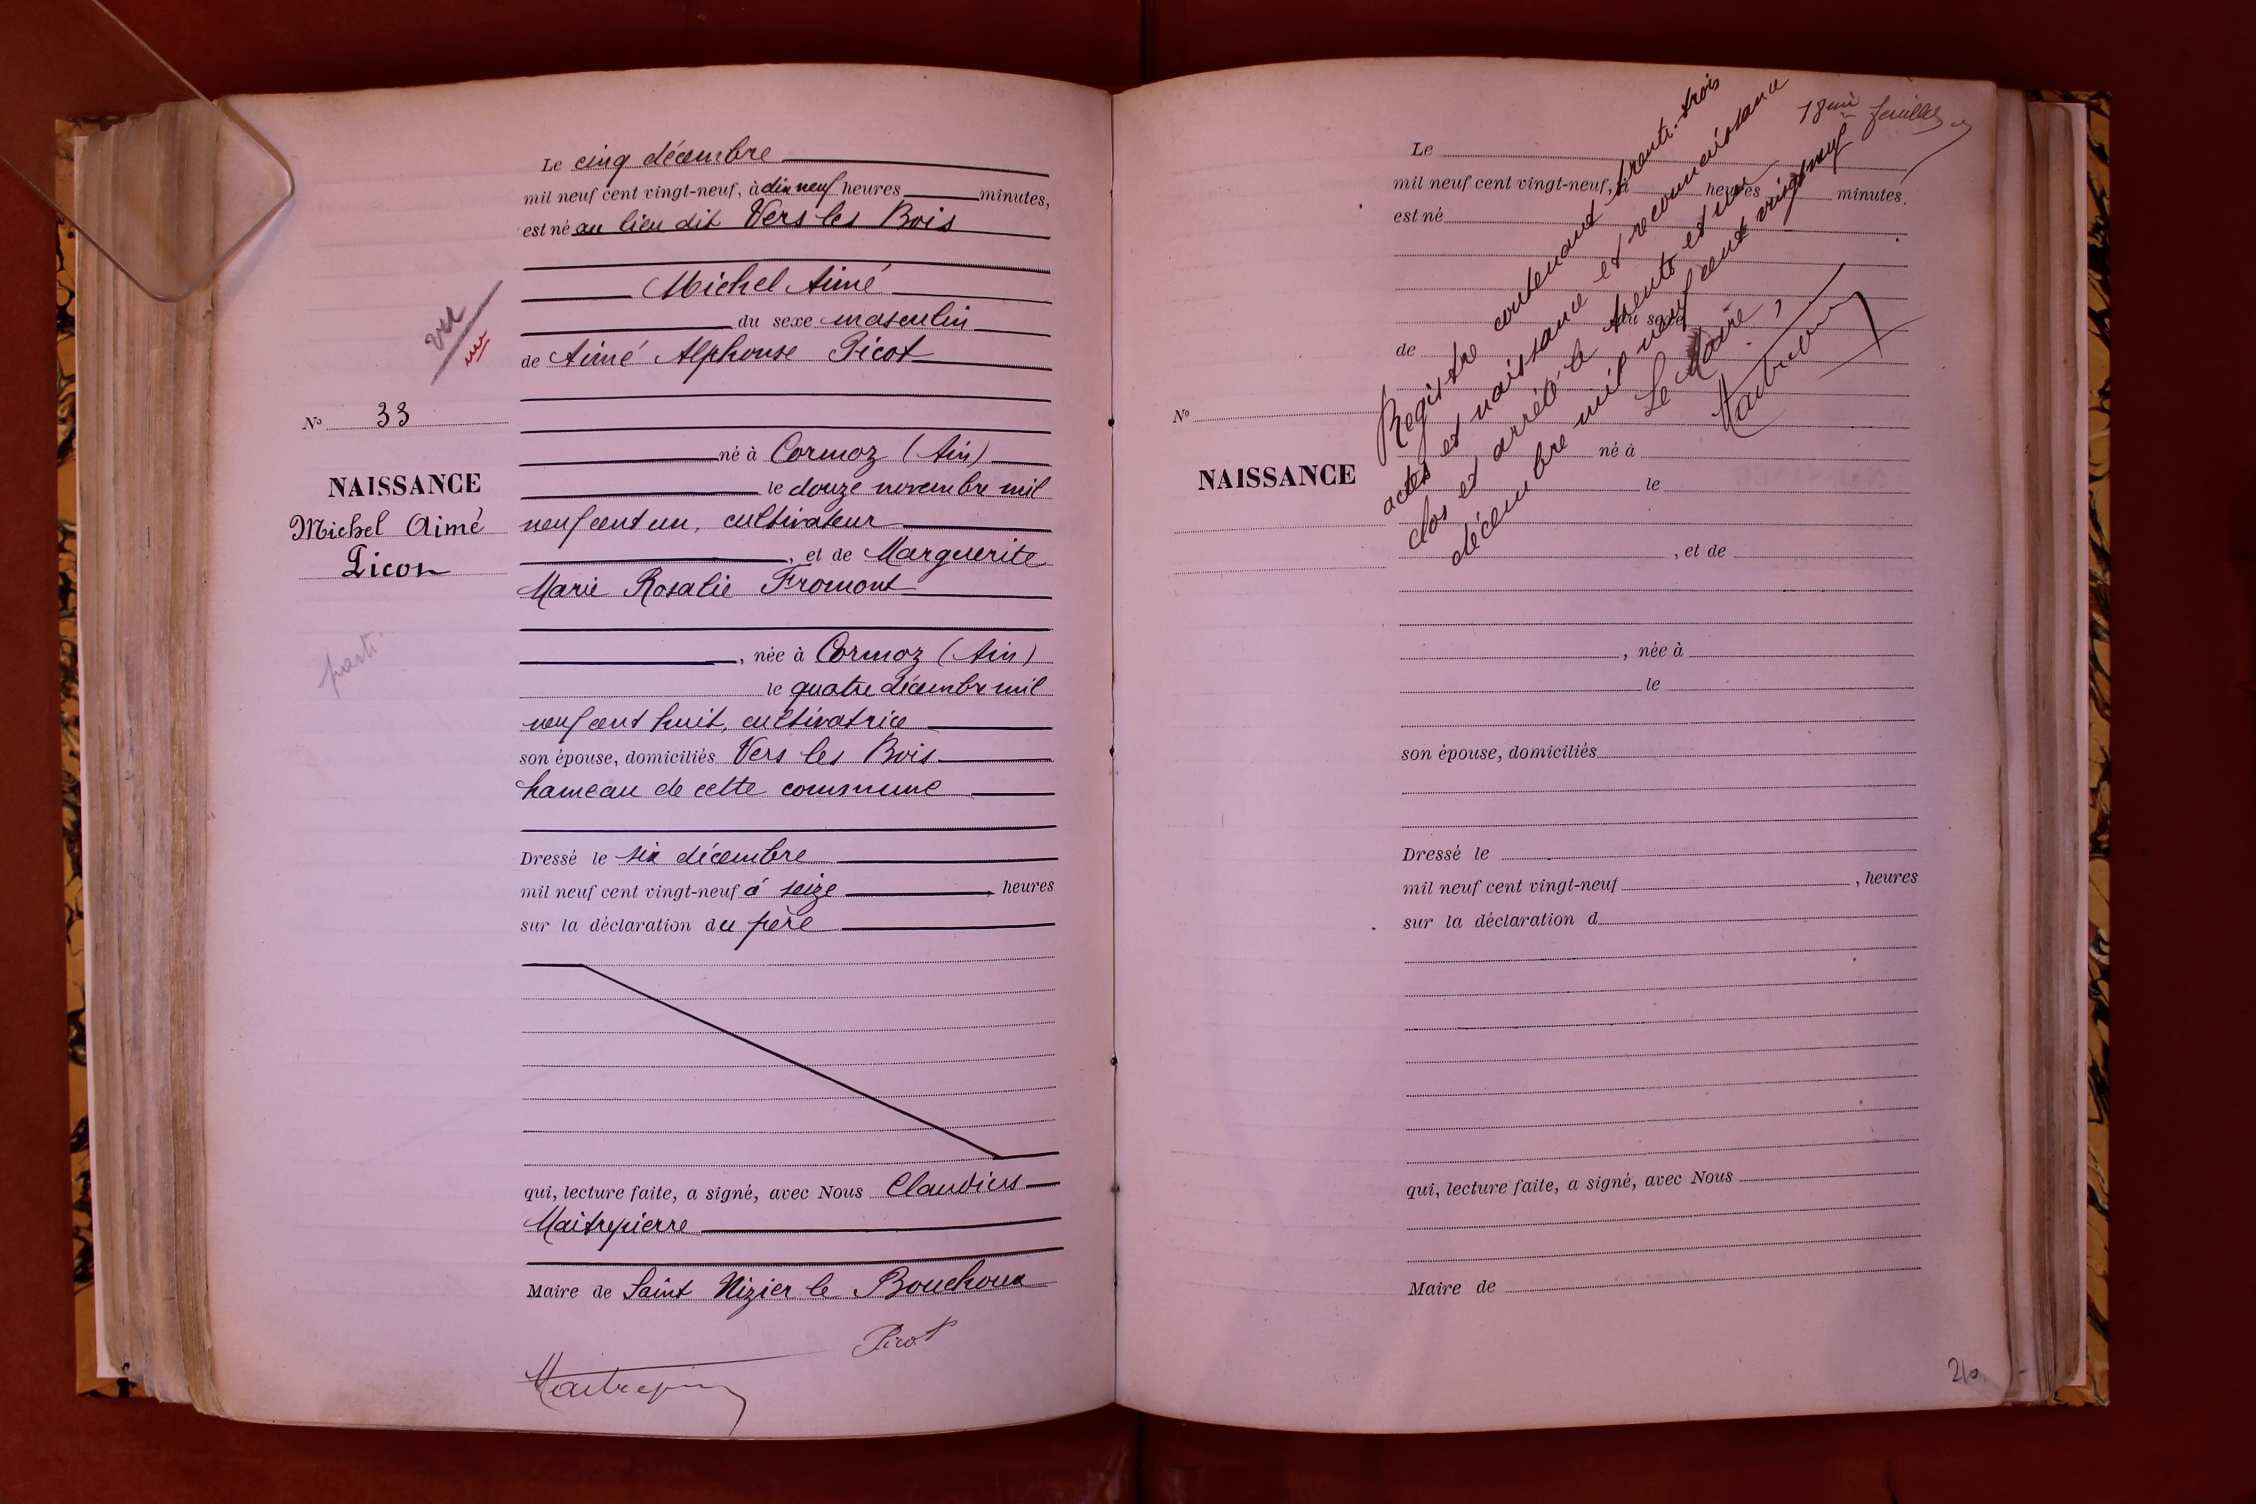 Le cinq décembre
mil neuf cent vingt-neuf, à dix neuf heures minutes,
est né au lieu dit Vers les Bois
Michel Aimé
du sexe masculin
de Aimé Alphonse Picot
né à Cormoz (Ain)
le douze novembre mil
neuf cent un, cultivateur
, et de Marguerite
Marie Rosalie Fromont
, née à Cormoz (Ain)
le quatre décembre mil
neuf cent huit, cultivatrice
son épouse, domiciliés Vers les Bois
hameau de cette commune
Dressé le six décembre
mil neuf cent vingt-neuf à seize , heures
sur la déclaration du père
qui, lecture faite, a signé, avec Nous Claudius
Maitrepierre
Maire de Saint Nizier le Bouchoux
Picot
Maitrepierre
vu
No 33
NAISSANCE
Michel Aimé
Picot
18eme feuillet
Registre contenant trente-trois
actes et naissance et reconnaissance
clos et arrêté le trente et un
décembre mil neuf cent vingt neuf
Le Maire,
Le
mil neuf cent vingt-neuf, à heures minutes.
est né
du sexe
de
No
né à
NAISSANCE
le
, et de
, née à
le
son épouse, domiciliés
Dressé le
mil neuf cent vingt-neuf , heures
sur la déclaration d
qui, lecture faite, a signé, avec Nous
Maire de